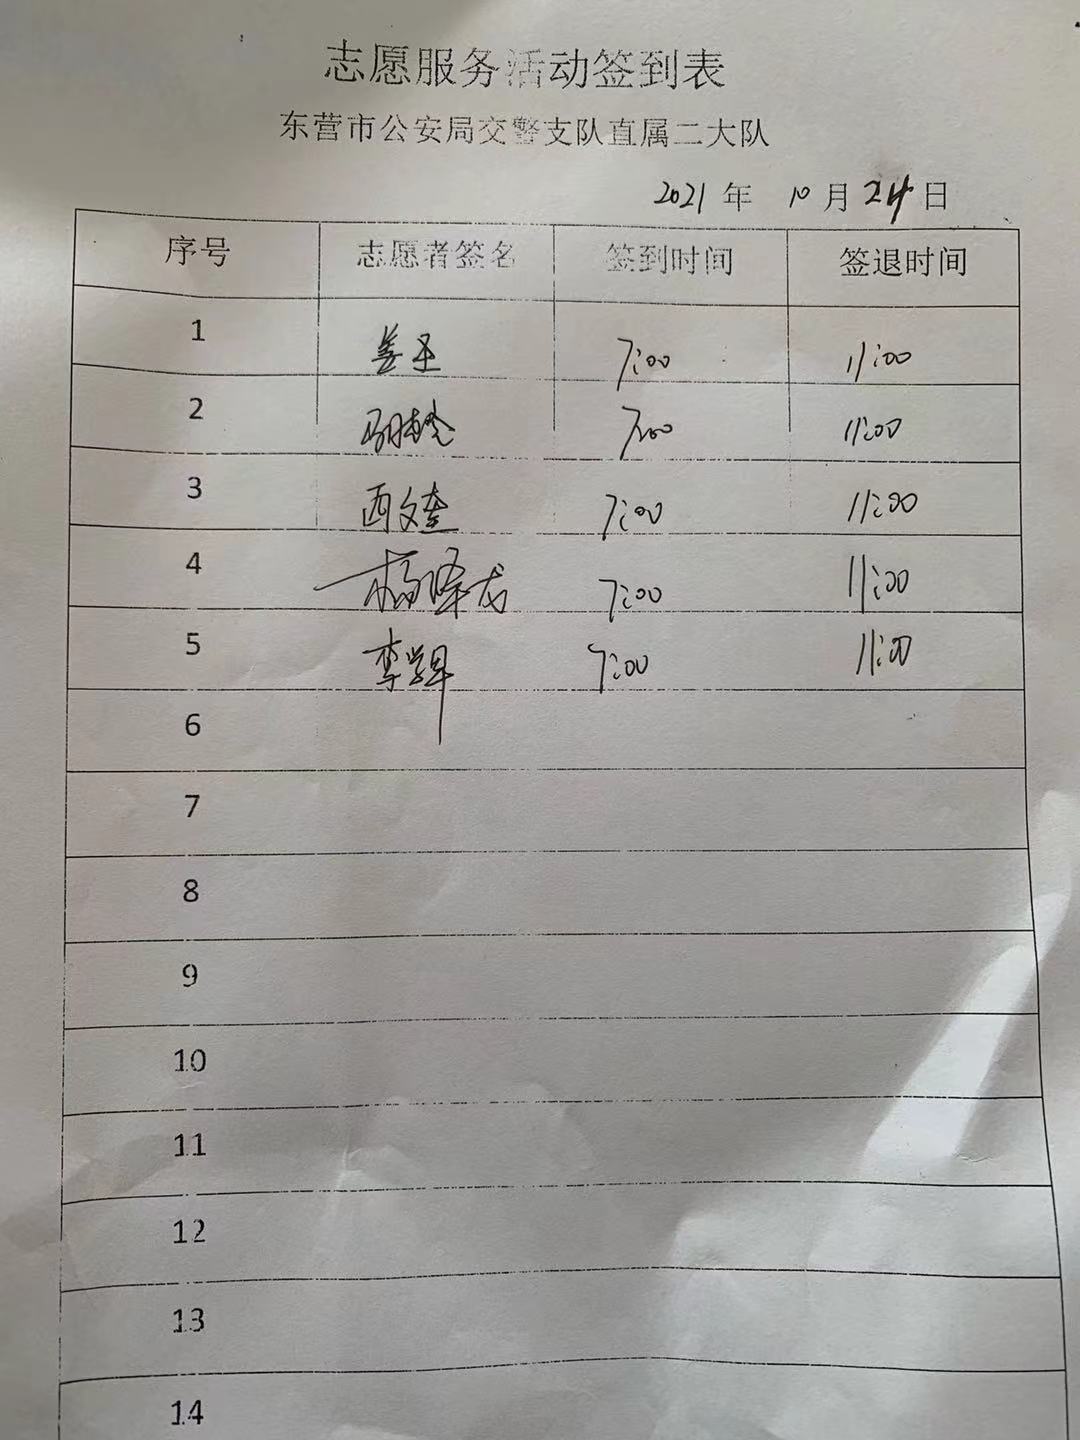 志愿服务活动签到表
东营市公安局交警支队直属二大队
2021 年 10 月 24 日
序号 志愿者签名 签到时间 签退时间
1 姜玉 7:00 11:00
2 7:00 11:00
3 西文奎 7:00 11:00
4 杨泽龙 7:00 11:00
5 李 7:00 11:00
6
7
8
9
10
11
12
13
14